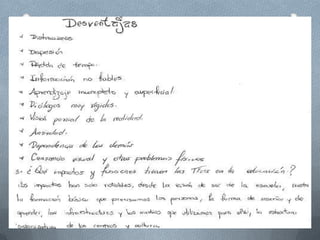 Desventajas
* Distracciones
* Dispersión
* Pérdida de tiempo.
* Información no fiables.
* Aprendizaje incompleto y superficial.
* Diálogos muy rígidos.
* Visión parcial de la realidad.
* Ansiedad.
* Dependencia de los demás
* Cansancio visual y otros problemas físicos
3. ¿Qué impactos y funciones tienen las TICs en la educación?
Los impactos han sido notables, desde la razón de ser de la escuela, hasta
la formación básica que precisamos las personas, la forma de enseñar y de
aprender, las infraestructuras y los medios que utilizamos para ello, la estructura
organizativa de los centros y cultura.